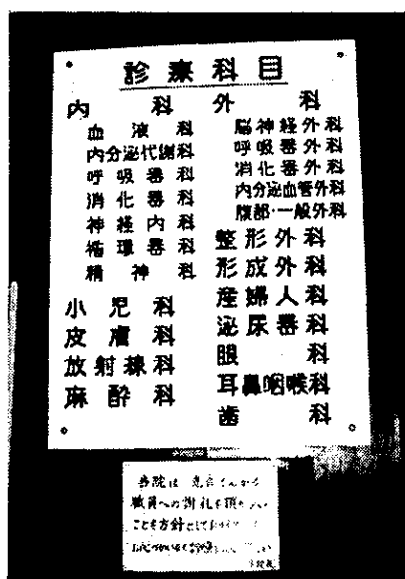 診療科目
内科
血液科
内分泌代謝科
呼吸器科
消化器科
神経内科
循環器科
精神科
小児科
皮膚科
放射線科
麻酔科
外科
脳神経外科
呼吸器外科
消化器外科
内分泌血管外科
腹部・一般外科
整形外科
形成外科
産婦人科
泌尿器科
眼科
耳鼻咽喉科
歯科
当院は 患者さんから
職員への謝礼を頂かない
ことを方針として